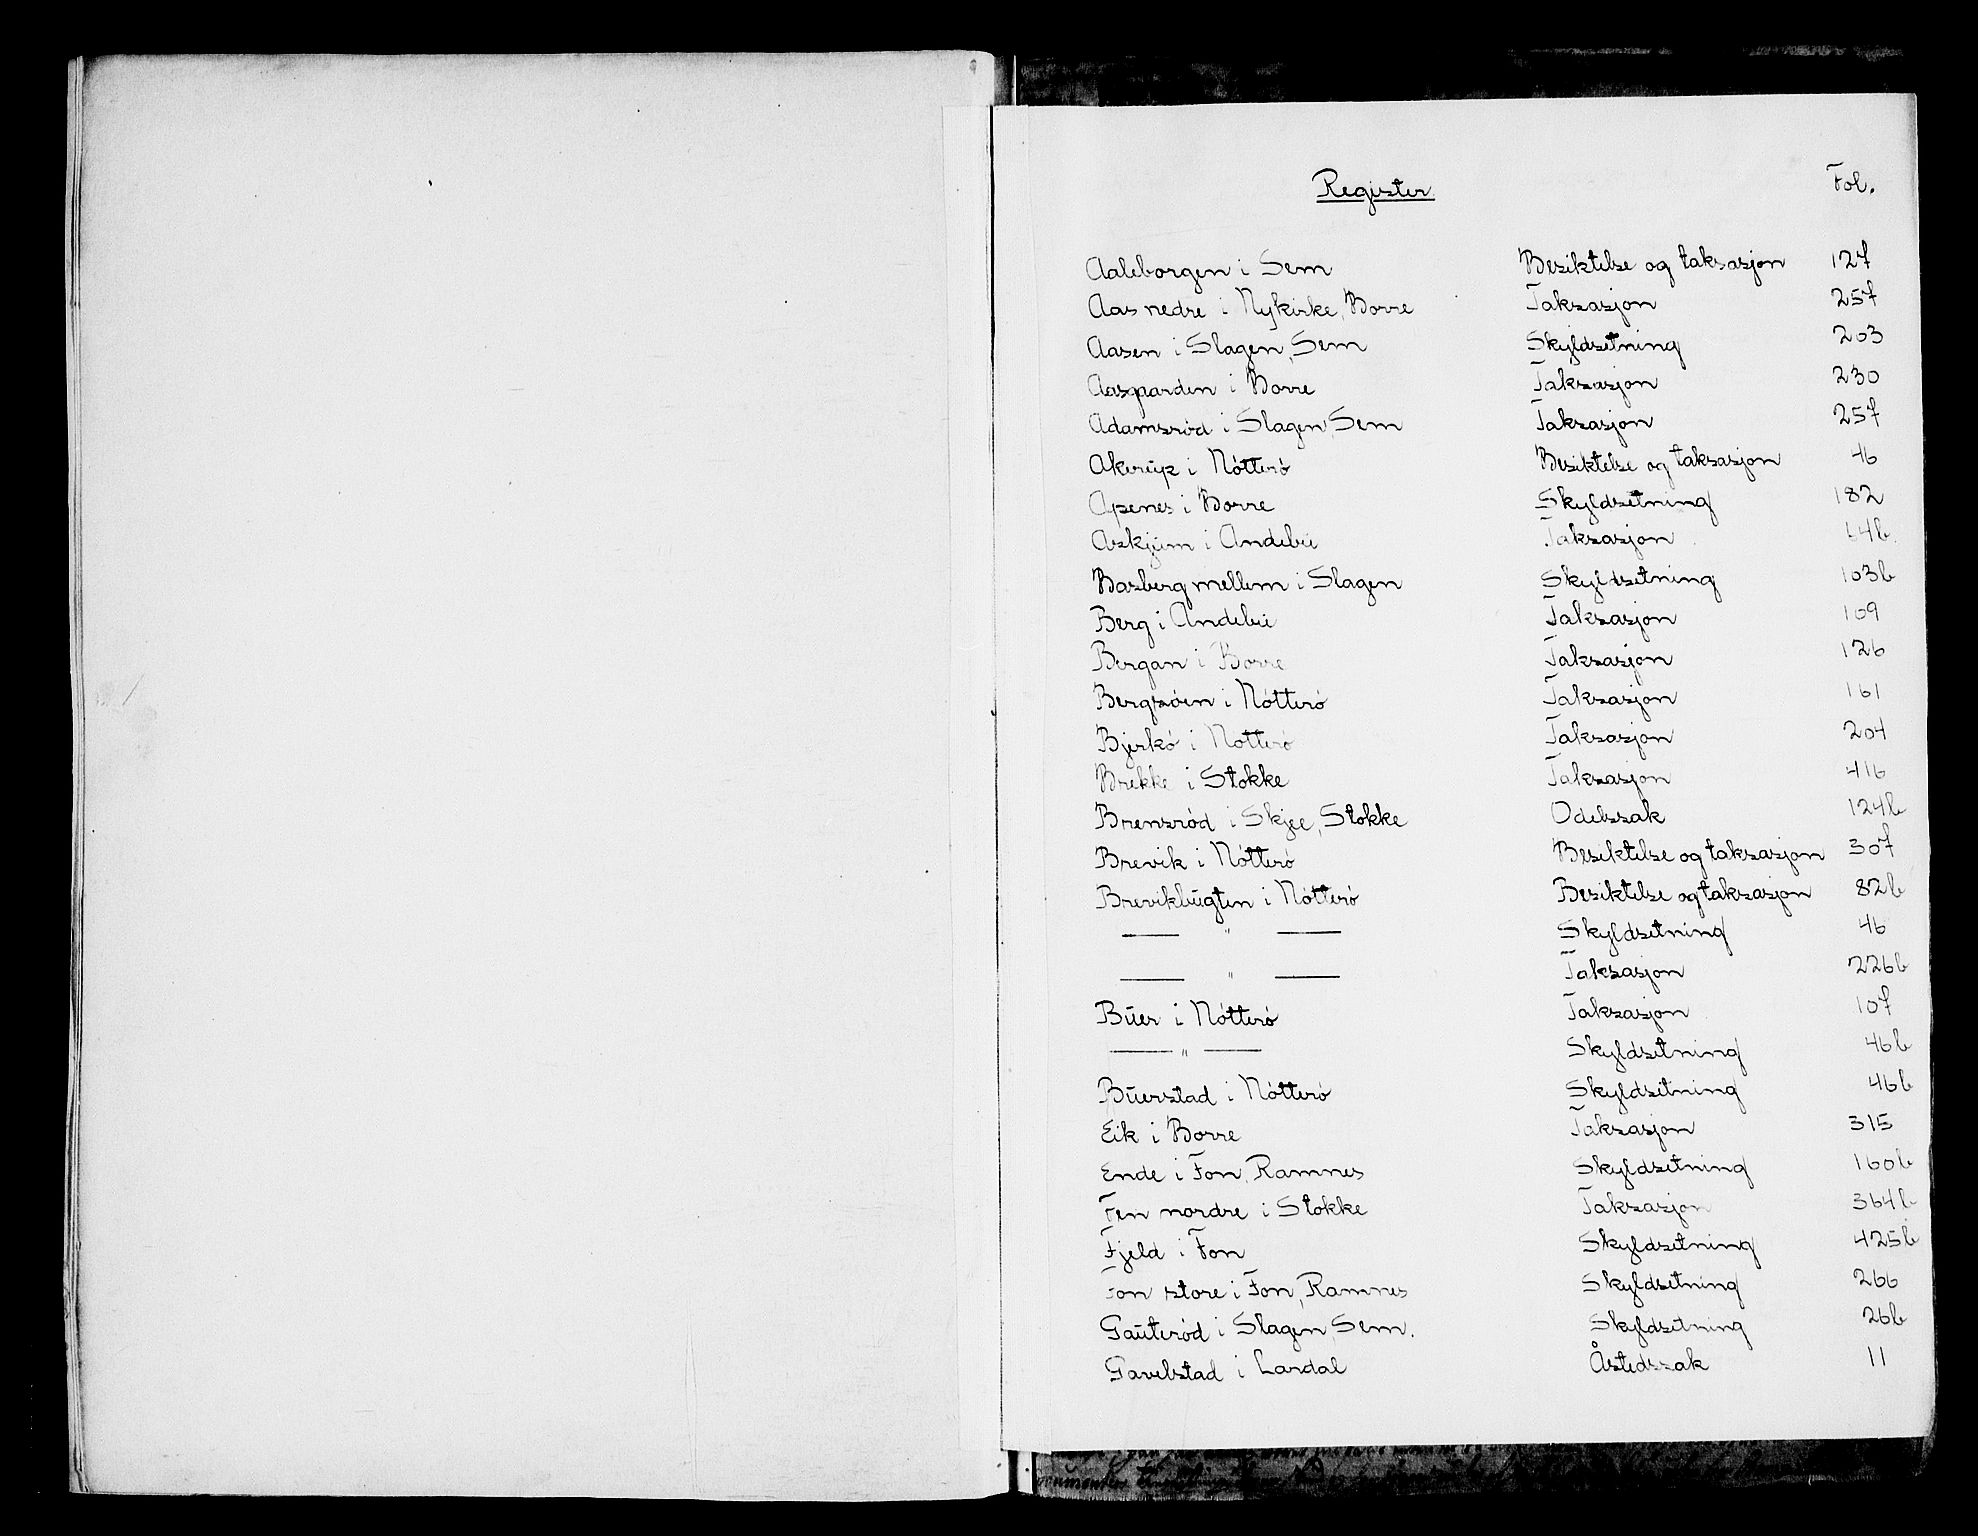 Register. Fol.
Aaleborgen i Sem Besiktelse og taksasjon 127
Aas nedre i Nykirke, Borre Taksasjon 257
Aasen i Slagen, Sem Skyldsetning 203
Aasgaarden i Borre Taksasjon 230
Adamsrød i Slagen, Sem Taksasjon 257
Akerup i Nøtterø Besiktelse og taksasjon 46
Apenes i Borre Skyldsetning 182
Askjum i Andebu Taksasjon
Basberg mellem i Slagen Skyldsetning 103b
Berg i Andebu Taksasjon 109
Bergan i Borre Taksasjon 126
Bergsøen i Nøtterø Taksasjon 161
Bjerkø i Nøtterø Taksasjon 204
Brekke i Stokke Taksasjon 416
Brensrød i Skjee, Stokke Odelssak 124b
Brevik i Nøtterø Besiktelse og taksasjon 307
Brevikbugten i Nøtterø Besiktelse og taksasjon 82b
— " — Skyldsetning 46
— " — Taksasjon 226b
Buer i Nøtterø Taksasjon 107
— " — Skyldsetning 46b
Buerstad i Nøtterø Skyldsetning 46b
Eik i Borre Taksasjon 315
Ende i Fon, Ramnes Skyldsetning 160b
Fen nordre i Stokke Taksasjon 364b
Fjeld i Fon Skyldsetning 425b
Fon store i Fon, Ramnes Skyldsetning 266
Gauterød i Slagen, Sem. Skyldsetning 26b
Gavelstad i Lardal Åstedssak 11